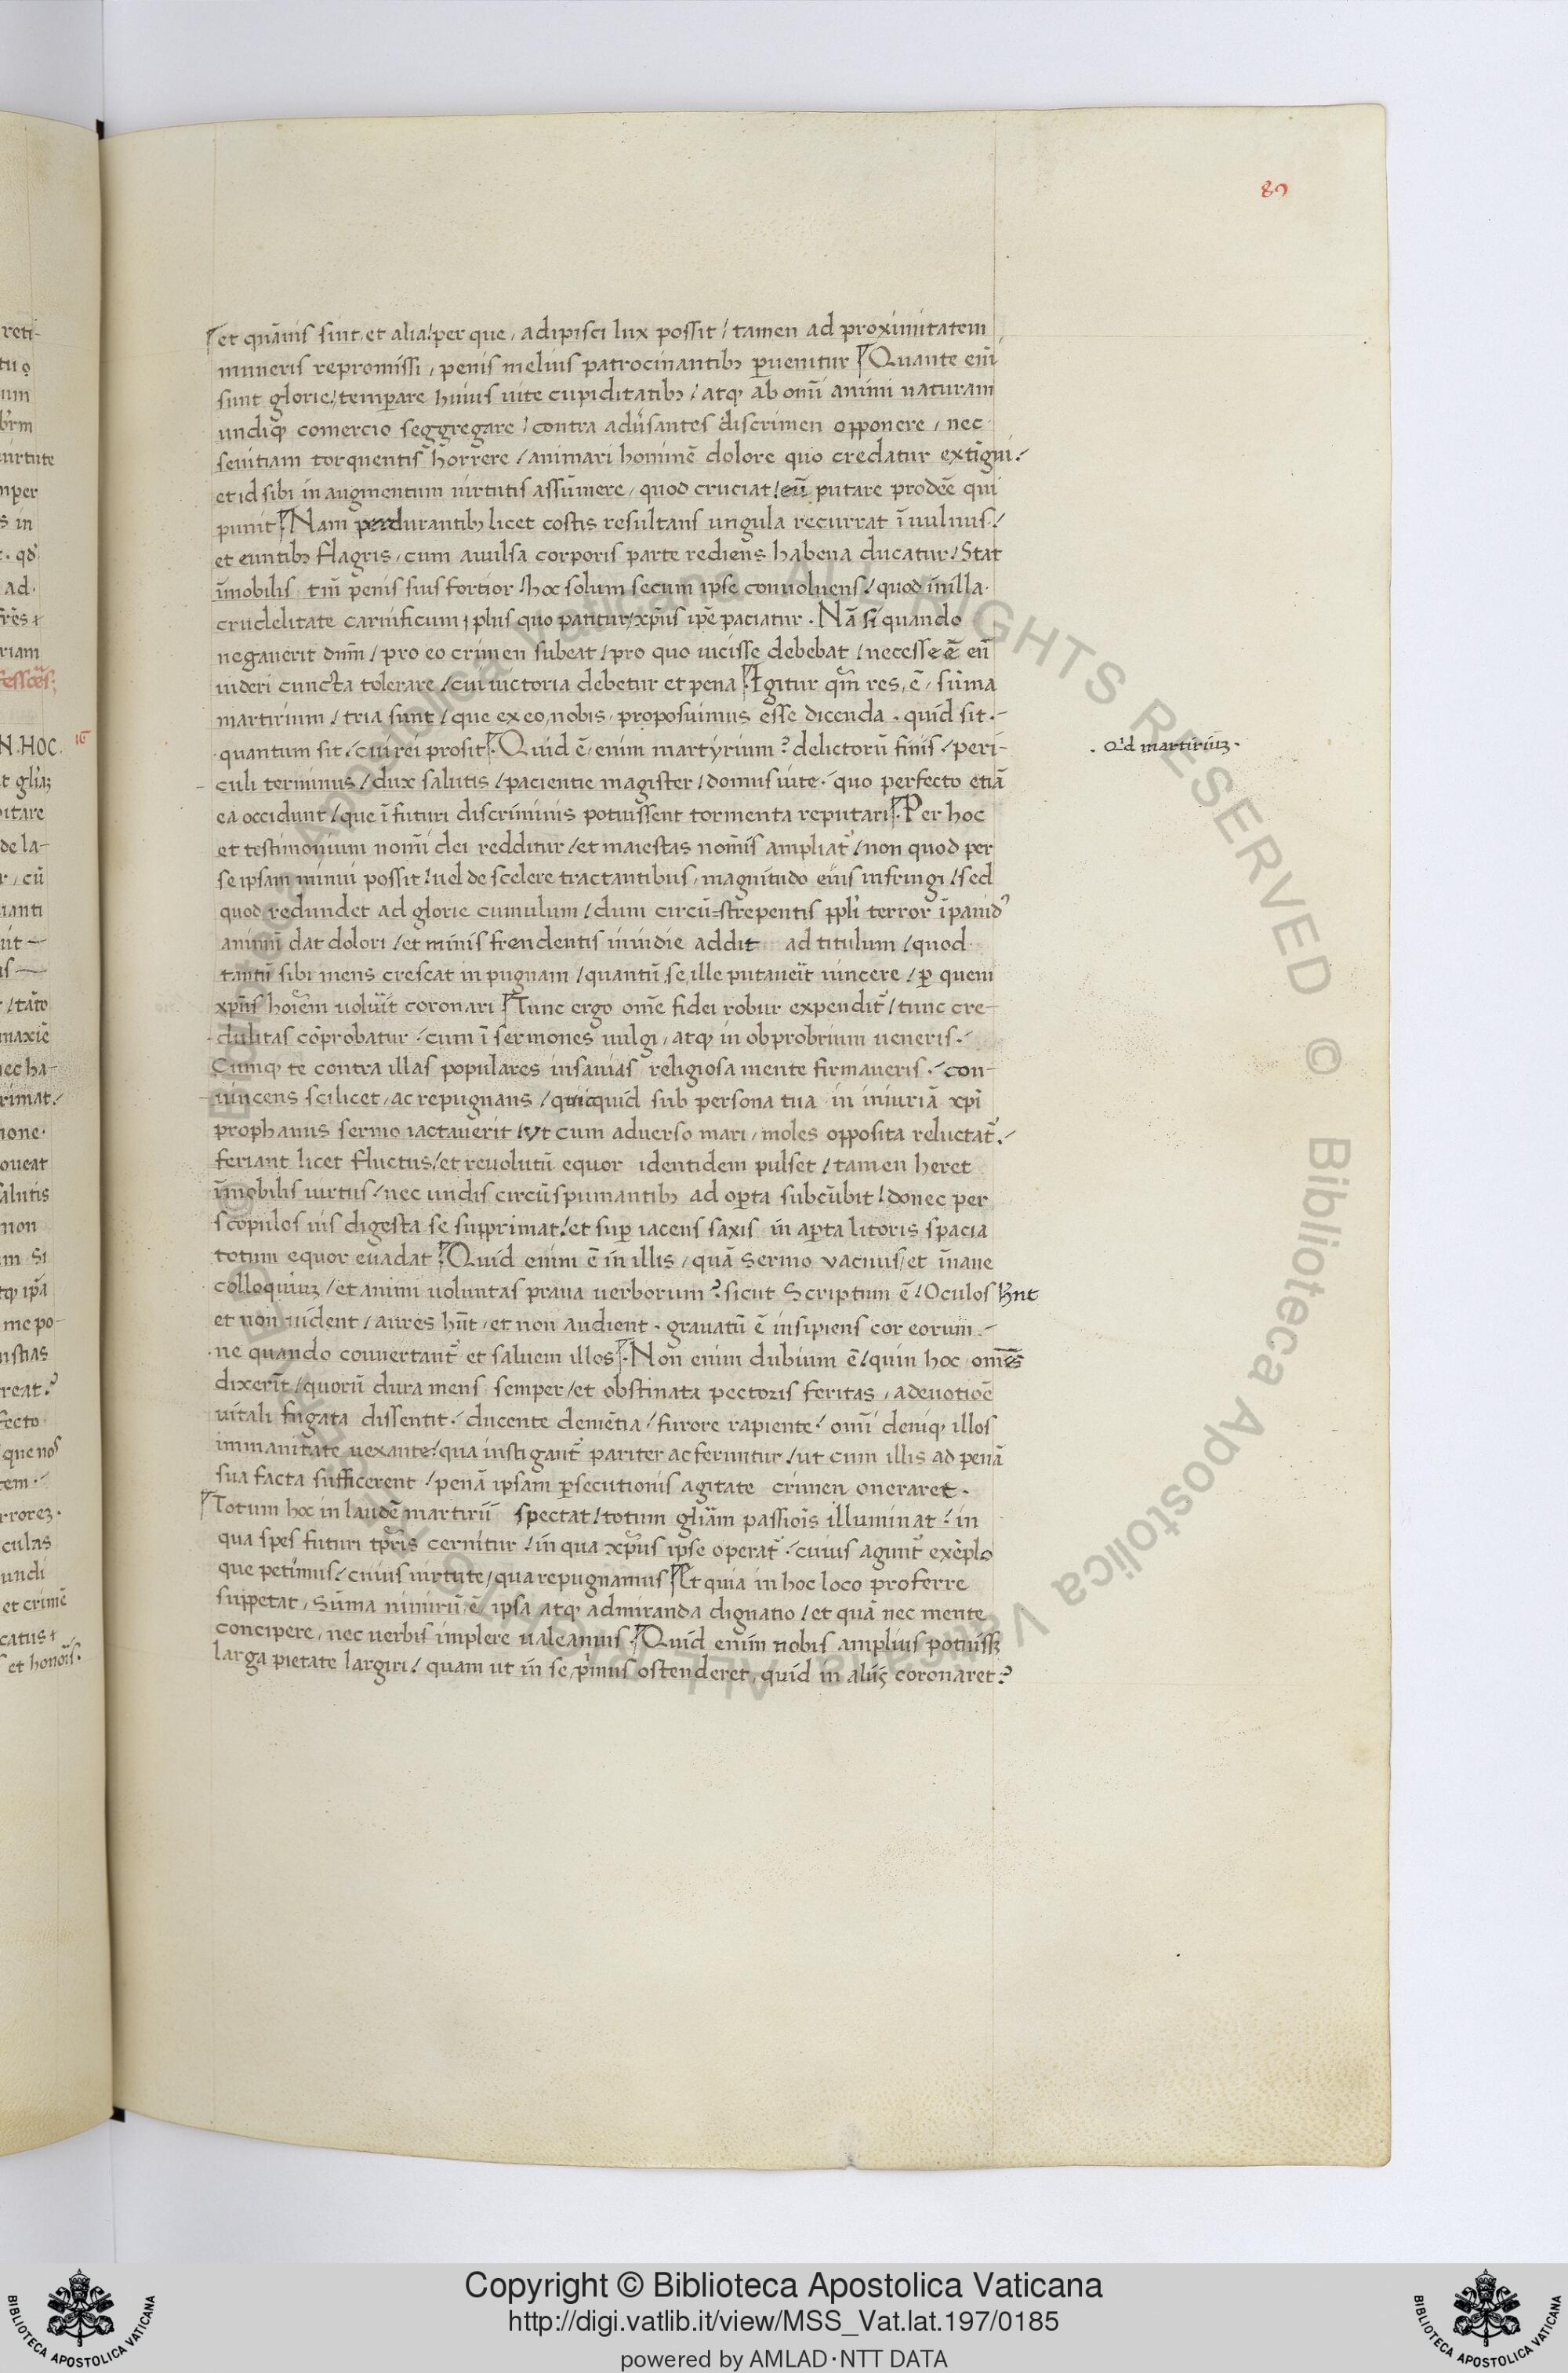 89
et quãuis sint et alia / per que, adipisci lux possit / tamen ad proximitatem
muneris repromissi, penis melius patrocinantibꝫ ꝑuenitur Quante eni᷒
sunt glorie / temꝑare huius uite cupiditatibꝫ / atqꝫ ab omĩ animi naturam
undiqꝫ comercio seggregare / contra adũsantes discrimen opponere, nec
seuitiam torquentis horrere / animari hominẽ dolore quo credatur extĩgui /
et id sibi in augmentum uirtutis assũmere, quod cruciat / eũ putare prodẽe qui
punit Nam perdurantibꝫ licet costis resultans ungula recurrat ĩ uulnus /
et euntibꝫ flagris, cum auulsa corporis parte rediens habena ducatur / Stat
ĩmobilis tñ penis suis fortior / hoc solum secum ipse conuoluens / quod in illa
crudelitate carnificum, plus quo patitur / xp̃us ip̃e paciatur . Nã si quando
negauerit dñm / pro eo crimen subeat / pro quo uicisse debebat / necesse ẽ eũ
uideri cuncta tolerare / cui uictoria debetur et pena Igitur qm̃ res, ẽ, sũma
martirium / tria sunt / que ex eo, nobis, proposuimus esse dicenda . quid sit .
quantum sit / cui rei prosit . Quid ẽ, enim martyrium ? delictorũ finis / peri-
. Qd martiriuꝫ .
culi terminus / dux salutis / pacientie magister / domus uite . quo perfecto etiã
ea occidunt / que ĩ futuri discriminis potuissent tormenta reputari . Per hoc
et testimonium nomĩ dei redditur / et maiestas nomĩs ampliat᷒ / non quod per
se ipsam minui possit / uel de scelere tractantibus, magnitudo eius infringi / sed
quod redundet ad glorie cumulum / dum circũ=strepentis ppli terror ĩpauid᷒
animũ dat dolori / et minis frendentis inuidie addit ad titulum / quod
tantũ sibi mens crescat in pugnam / quantũ se, ille putauerit uincere / ꝑ quem
xp̃us hoiem uoluit coronari Tunc ergo ome fidei robur expendit᷒ / tunc cre-
dulitas cõprobatur / cum ĩ sermones uulgi, atqꝫ in obprobrium ueneris .
Cumqꝫ te contra illas populares insanias religiosa mente firmaueris . con-
uincens scilicet, ac repugnans / quicquid sub persona tua in iniuriã xpi
prophanus sermo iactauerit / vt cum aduerso mari, moles opposita reluctat᷒ .
feriant licet fluctus / et reuolutũ equor identidem pulset / tamen heret
ĩmobilis uirtus / nec undis circũspumantibꝫ ad oꝑta subcũbit / donec per
scopulos uis digesta se supprimat / et suꝑ iacens saxis in aꝑta litoris spacia
totum equor euadat Quid enim ẽ in illis, quã sermo vacuus / et inane
colloquiuꝫ / et animi uoluntas praua uerborum ? sicut Scriptum ẽ / Oculos hñt
et non uident / aures hñt, et non audient . grauatũ ẽ insipiens cor eorum .
ne quando conuertant᷒ et saluem illos . Non enim dubium ẽ / quin hoc om̃es
dixerĩt / quorũ dura mens semper / et obstinata pectoris feritas, a deuotiõe
uitali fugata dissentit . ducente demẽtia / furore rapiente / omĩ deniqꝫ illos
immanitate uexante / qua instigant᷒ pariter ac feruntur / ut cum illis ad penã
sua facta sufficerent / penã ipsam ꝑsecutionis agitate crimen oneraret .
Totum hoc in laudẽ martirii spectat / totum gl̃iam passiõis illuminat / in
qua spes futuri tpris cernitur / in qua xp̃us ipse operat᷒ . cuius agunt᷒ exẽplo
que petimus / cuius uirtute, qua repugnamus Et quia in hoc loco proferre
suppetat, sũma nimirũ, ẽ, ipsa atqꝫ admiranda dignatio / et quã nec mente
concipere, nec uerbis implere ualeamus . Quid enim nobis amplius potuissꝫ
larga pietate largiri / quam ut in se, primus ostenderet, quid in aliis coronaret ?
Copyright © Biblioteca Apostolica Vaticana
http://digi.vatlib.it/view/MSS_Vat.lat.197/0185
powered by AMLAD·NTT DATA